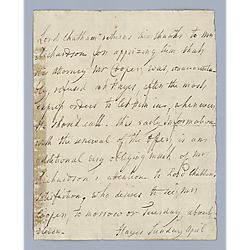 Lord Chatham returns his thanks to Mr
Richardson for apprizing him that
his Attorney Mr Cooper, was, unaccounta-
bly refused at Hayes after the most
express orders to let him in, whenever
He should call. the early Information
with the renewal of the Offer, is an
additional very obliging mark of Mr
Richardson's attention to Lord Chatham's
Satisfaction, who desires to see Mr
Cooper, to morrow or Tuesday about
eleven.
Hayes Sunday April